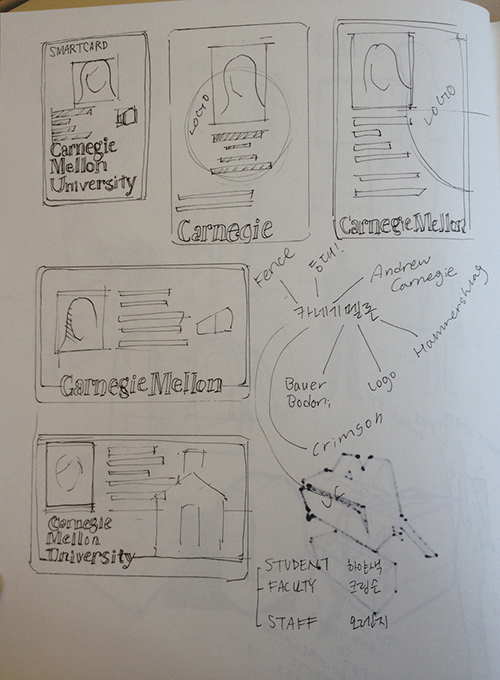 SMARTCARD
Carnegie
Mellon
University
LOGO
Carnegie
LOGO
Carnegie Mellon
Fence
Andrew
Carnegie
카네기멜론
Hammerschlag
Bauer
Bodoni
Logo
Crimson
Carnegie Mellon
Carnegie
Mellon
University
STUDENT 하얀색
FACULTY 크림슨
STAFF 오렌지